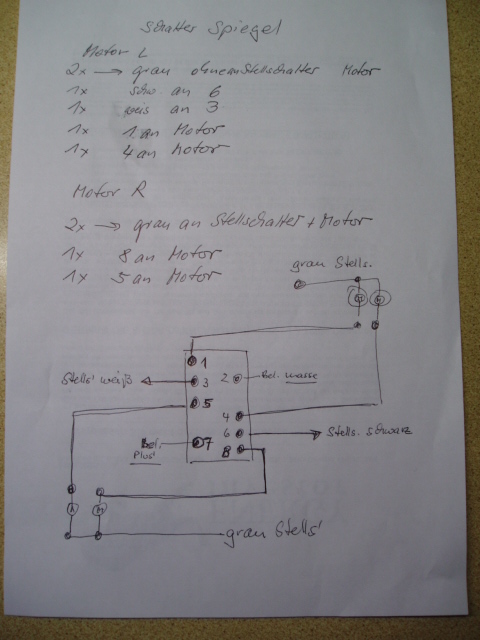 Schalter Spiegel
Motor L
2x → grau ohne an Stellschalter Motor
1x schw an 6
1x weis an 3
1x 1 an Motor
1x 4 an Motor
Motor R
2x → grau an Stellschalter + Motor
1x 8 an Motor
1x 5 an Motor
grau Stells.
1
Stells' weiß 3 2 Bel. Masse
5
4
6 Stells. schwarz
Bel. Plus' 7 8
M
grau Stells'